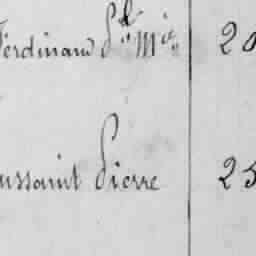 Ferdinand Ste. Mie. 20
ussaint Pierre 25